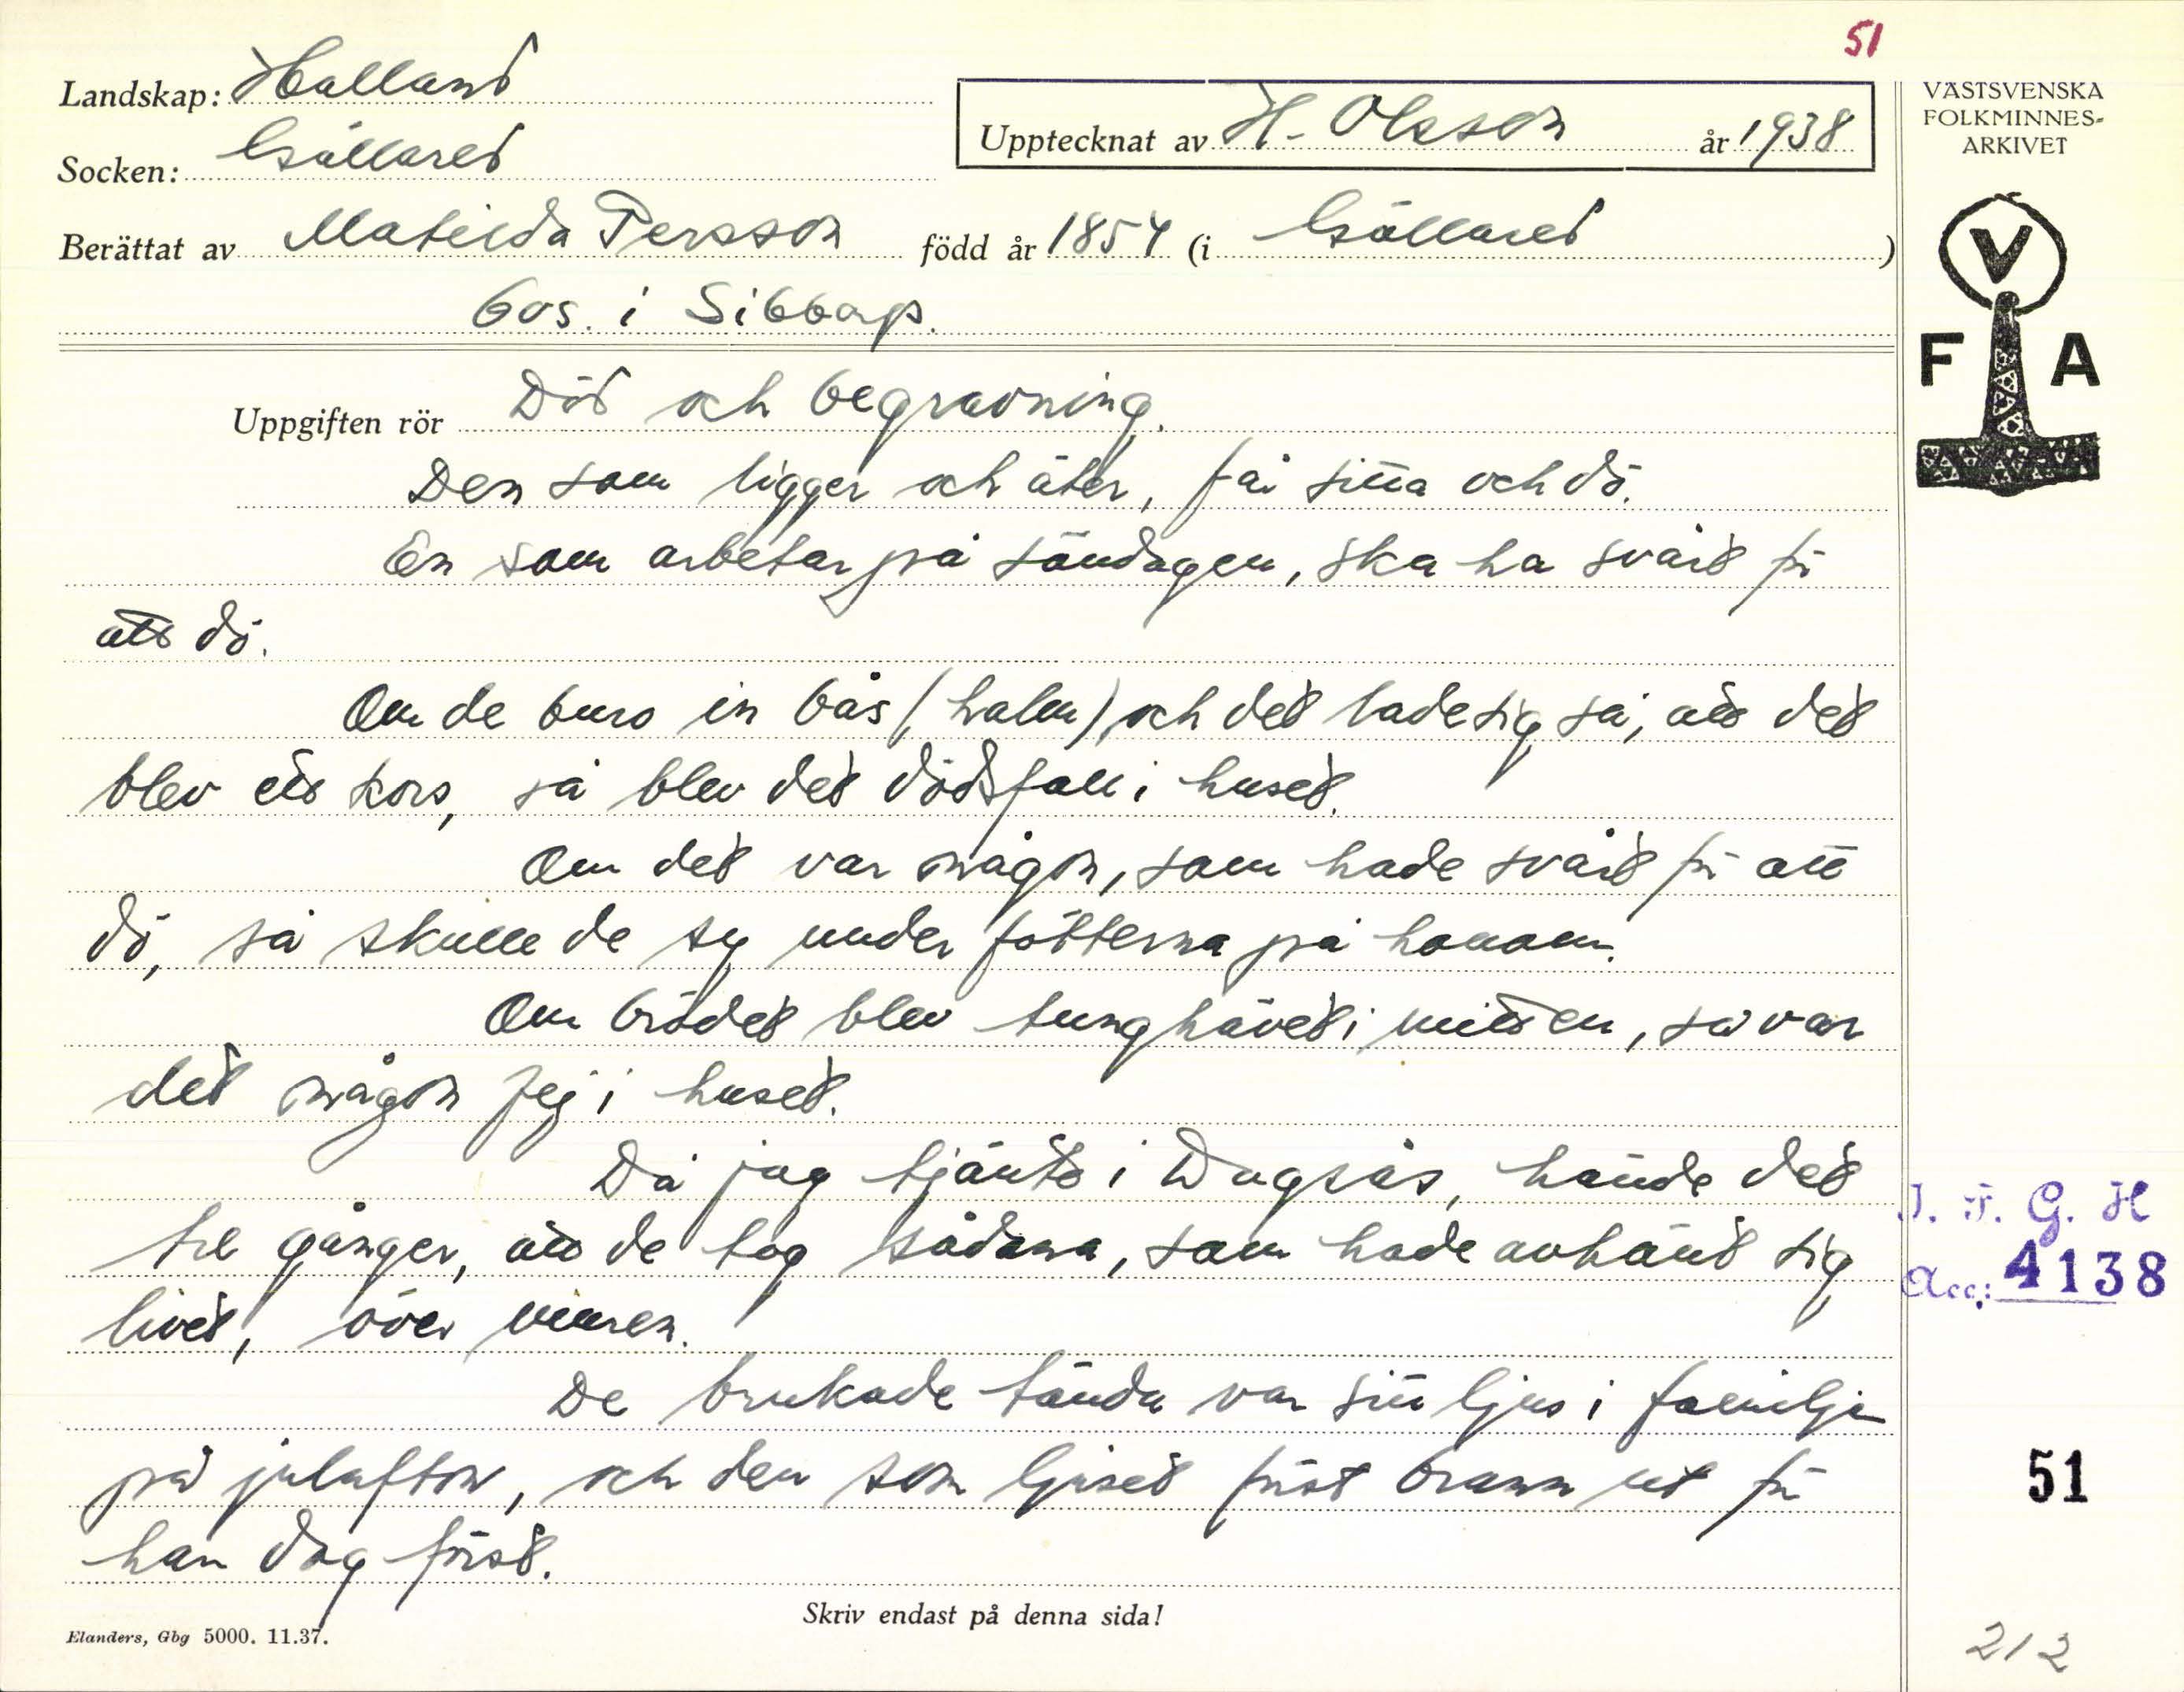 51
Landskap: Halland
Socken: Gällared
Upptecknat av H. Olsson år 1938
Berättat av Matilda Persson född år 1854 (i Gällared)
bos. i Sibbarp.
VÄSTSVENSKA
FOLKMINNES-
ARKIVET
V
F A
Uppgiften rör Död och begravning.
Den som ligger och äter, får sitta och dö.
En som arbetar på söndagen, ska ha svårt för
att dö.
Om de buro in bås (halm) och det lade sig så, att det
blev ett kors, så blev det dödsfall i huset.
Om det var någon, som hade svårt för att
dö, så skulle de sy under fötterna på honom.
Om brödet blev tunghävet i mitten, så var
det någon fej i huset.
Då jag tjänte i Dagsås, hände det
tre gånger, att de tog sådana, som hade avhänt sig
livet, över muren.
De brukade tända var sitt ljus i familjen
på julafton, och den som ljuset först brann ut för
han dog först.
Skriv endast på denna sida!
Elanders, Gbg 5000. 11.37.
I. F. G. H
Acc: 4138
51
212